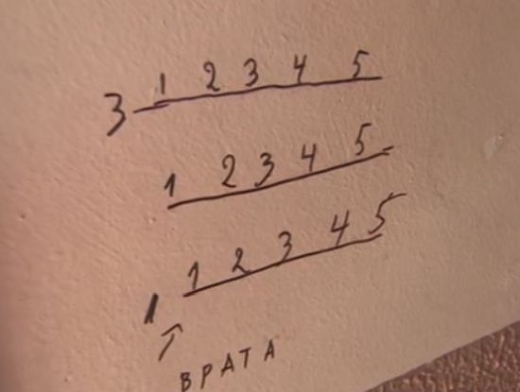 3 1 2 3 4 5
1 2 3 4 5
1 1 2 3 4 5
↑
ВРАТА